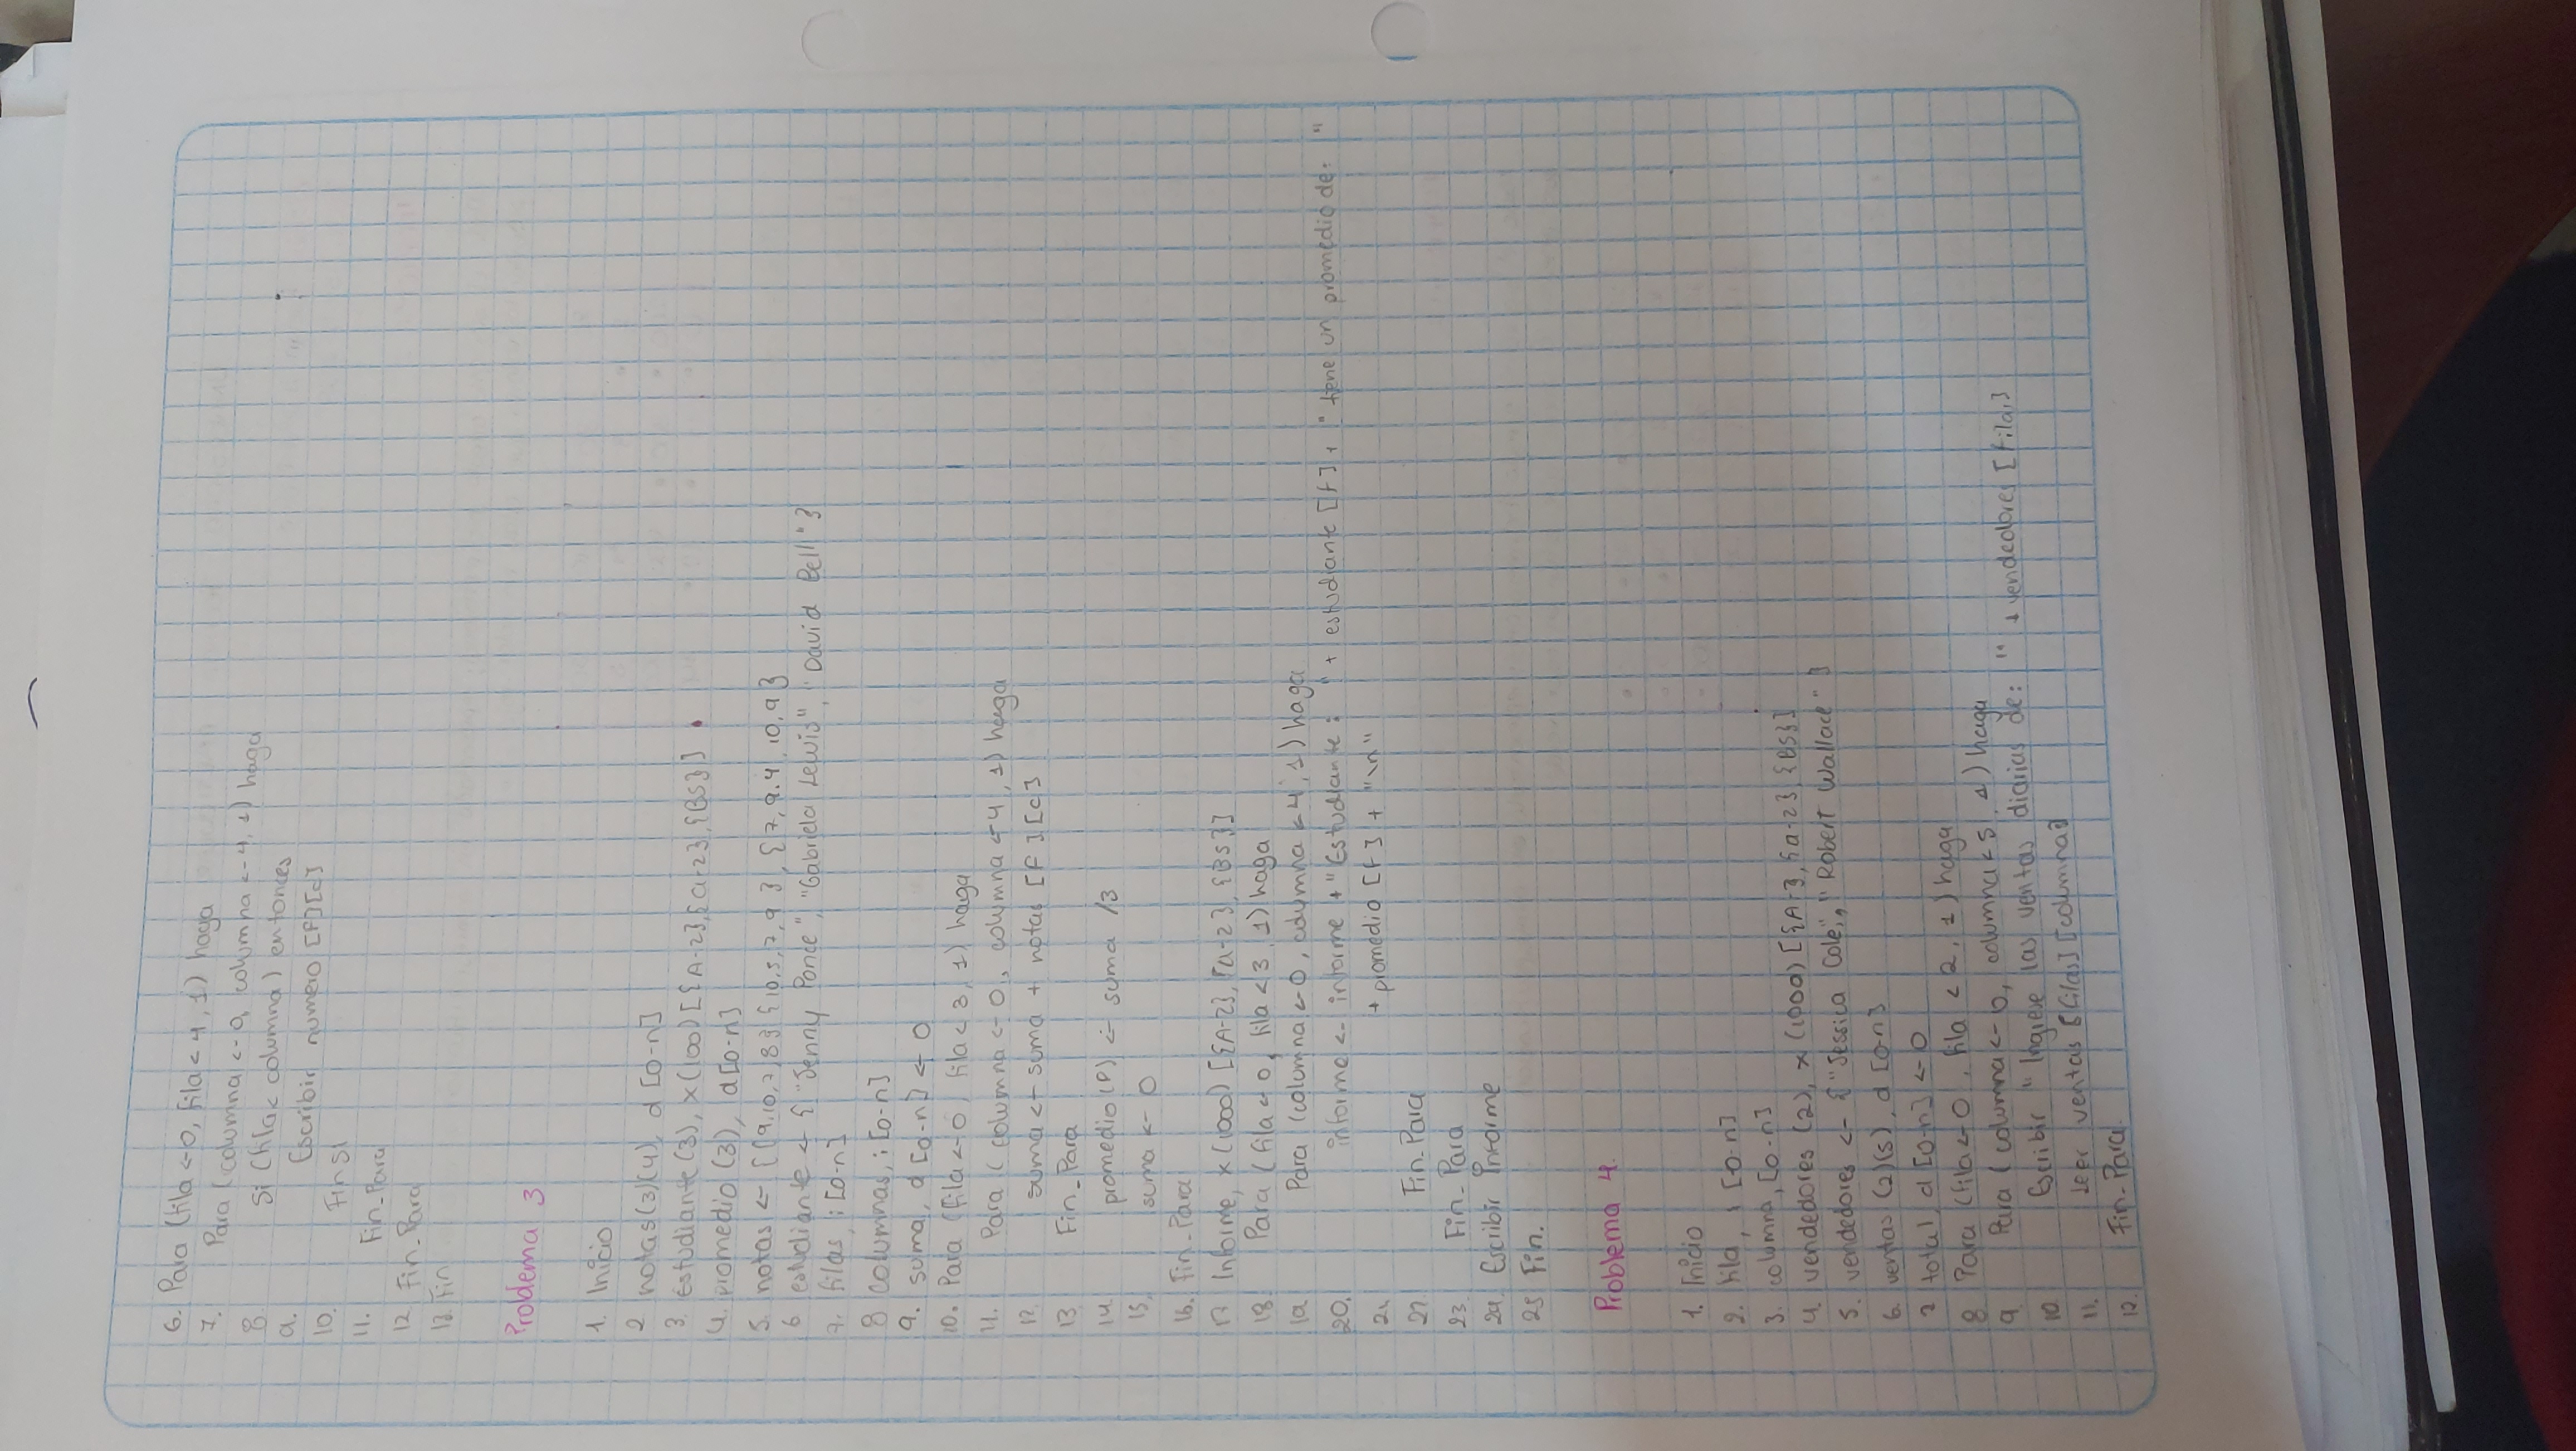 6. Para (fila <-0, fila < 4, 1) haga
7. Para (columna <- 0, columna <- 4, 1) haga
8. Si (fila < columna) entonces
9. Escribir numero [F][c]
10. Fin si
11. Fin-Para
12 Fin-Para
13. Fin
Problema 3
1. Inicio
2 notas (3)(4), d [0-n]
3. Estudiante (3), x(100) [{A-z}, {a-z}, {BS}]
4. promedio (3), d[0-n]
5. notas <- [{9,10,7,8} {10,5,7,9}, {7,9.4, 10,9}
6 estudiante <- {"Jenny Ponce", "Gabriela Lewis", "David Bell"}
7. filas, i [0-n]
8 columnas, i [0-n]
9. suma, d [0-n] <- 0
10. Para (Fila <-0, fila < 3, 1) haga
11. Para (columna <- 0, columna <- 4, 1) haga
12. suma <- suma + notas [F][c]
13 Fin_Para
14 promedio (P) <- suma /3
15. suma <- 0
16. Fin-Para
17 Informe, x(1000) [{A-z}, {a-z}, {BS}]
18. Para (fila <- 0, fila < 3, 1) haga
19 Para (columna <- 0, columna < 4, 1) haga
20. informe <- informe + "Estudiante: " + estudiante [f] + " tiene un promedio de: "
21 + promedio [f] + "\n"
22. Fin-Para
23. Fin-Para
24. Escribir Informe
25 Fin.
Problema 4.
1. Inicio
2. fila, i [0-n]
3. columna, [0-n]
4. vendedores (2), x (1000) [{A-}, {a-z} {BS}]
5. vendedores <- {"Jessica Cole", "Robert Wallace" }
6. ventas (2)(5), d [0-n]
7 total, d [0-n] <- 0
8 Para (fila <- 0, fila < 2, 1) haga
9 Para (columna <- 0, columna < 5, 1) haga
10 Escribir "Ingrese las ventas diarias de: " + vendedores [fila]
11. Leer ventas [filas] [columna]
12. Fin-Para